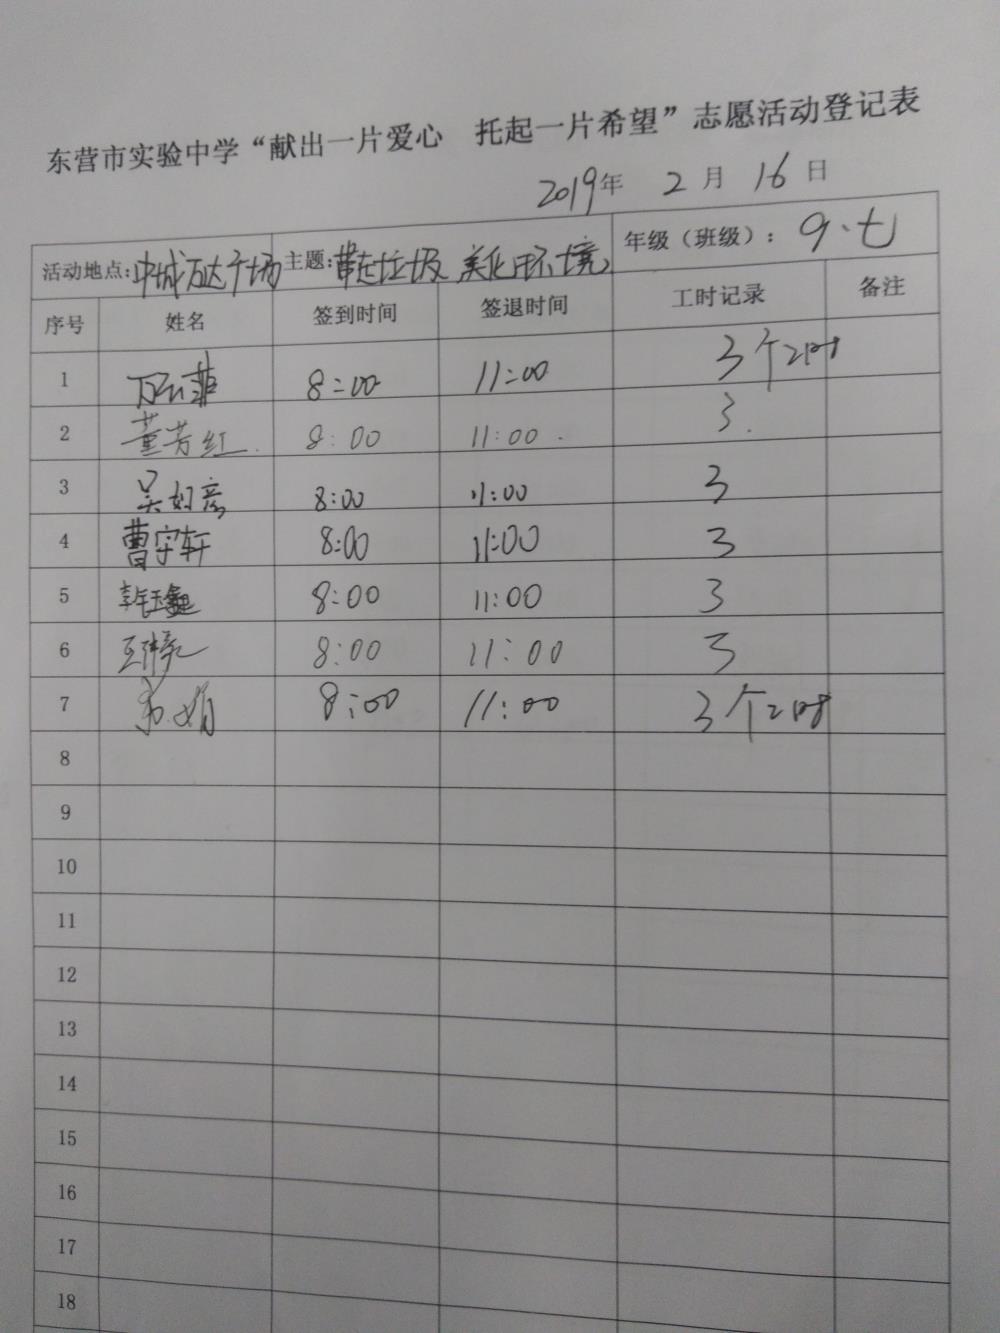 东营市实验中学“献出一片爱心 托起一片希望”志愿活动登记表
2019年 2月 16日
活动地点:中城万达广场 主题:带走垃圾 美化环境 年级(班级):9.七
序号 姓名 签到时间 签退时间 工时记录 备注
1 8:00 11:00 3个工时
2 董芳红. 8:00 11:00. 3.
3 吴如彦 8:00 11:00 3
4 曹宇轩 8:00 11:00 3
5 8:00 11:00 3
6 8:00 11:00 3
7 8:00 11:00 3个工时
8
9
10
11
12
13
14
15
16
17
18